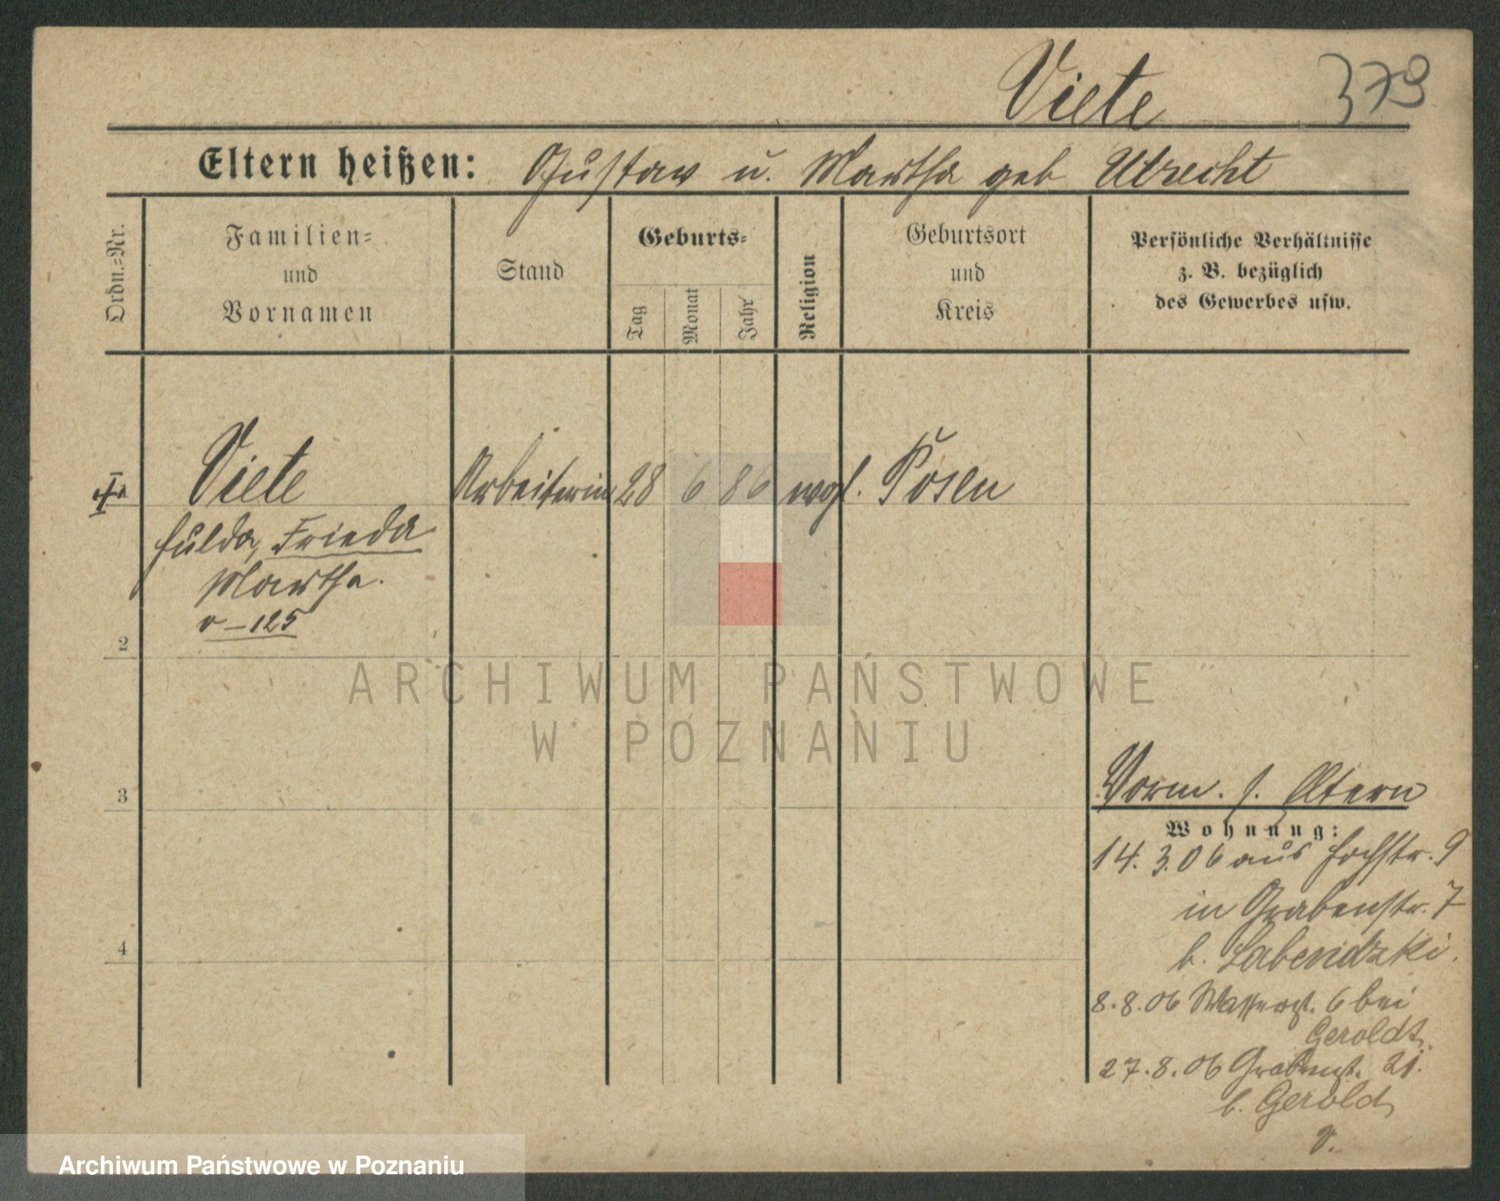 Viete 379
Eltern heißen: Gustav u. Martha geb Utrecht
Ordn.-Nr.
Familien-
und
Vornamen
Stand
Geburts-
Tag
Monat
Jahr
Religion
Geburtsort
und
Kreis
Persönliche Verhältnisse
z. B. bezüglich
des Gewerbes usw.
Viete Arbeiterin 28 6 86 Posen
Hulda, Frieda
Martha.
v - 125
2
3
4
Vorm. s. Eltern
Wohnung:
14.3.06 aus Hochstr. 9
in Grabenstr. 7
b. Labendzki.
8.8.06 Wasserst. 6 bei
Geroldt.
27.8.06 Grabenst. 21.
b. Gerold
v.
ARCHIWUM PAŃSTWOWE
W POZNANIU
Archiwum Państwowe w Poznaniu